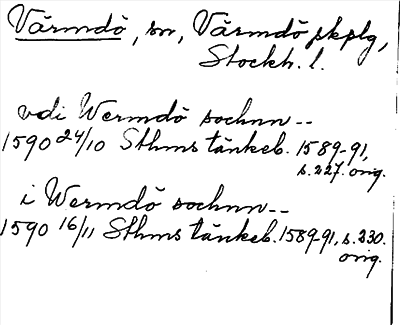 Värmdö, sn, Värmdö skplg,
Stockh. l.
vdi Wermdö sochnn--
1590 24/10 Sthms tänkeb. 1589-91,
s. 227. orig.
i Wermdö sochnn--
1590 16/11 Sthms tänkeb. 1589-91, s. 230.
orig.